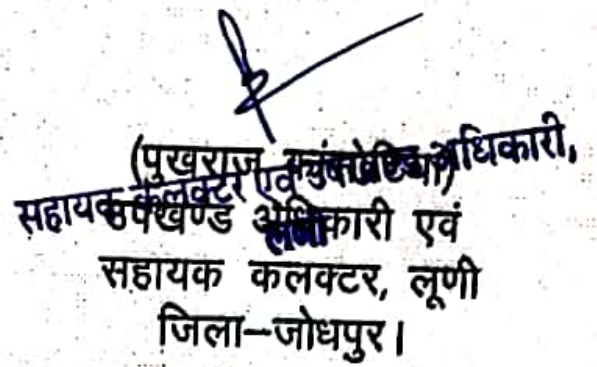 (पुखराज
सहायक कलक्टर एवं अधिकारी,
उपखण्ड अधिकारी एवं
सहायक कलक्टर, लूणी
जिला–जोधपुर।